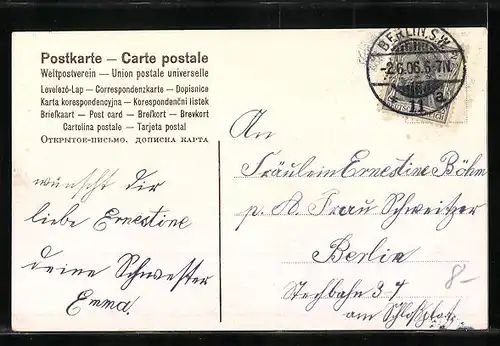 Postkarte – Carte postale
Weltpostverein – Union postale universelle
Levelező-Lap – Correspondenzkarte – Dopisnice
Karta korespondencyjna – Korespondenční listek
Briefkaart – Post card – Brefkort – Brevkort
Cartolina postale – Tarjeta postal
Открытое-письмо. дописна карта
BERLIN, S.W.
-2.6.06. 6-7N.
11 a
An
Fräulein Ernestine Böhm
p. A. Frau Schweitzer
Berlin
Stechbahn 3 4
am Schloßplatz
8-
wünscht dir
liebe Ernestine
deine Schwester
Emma.